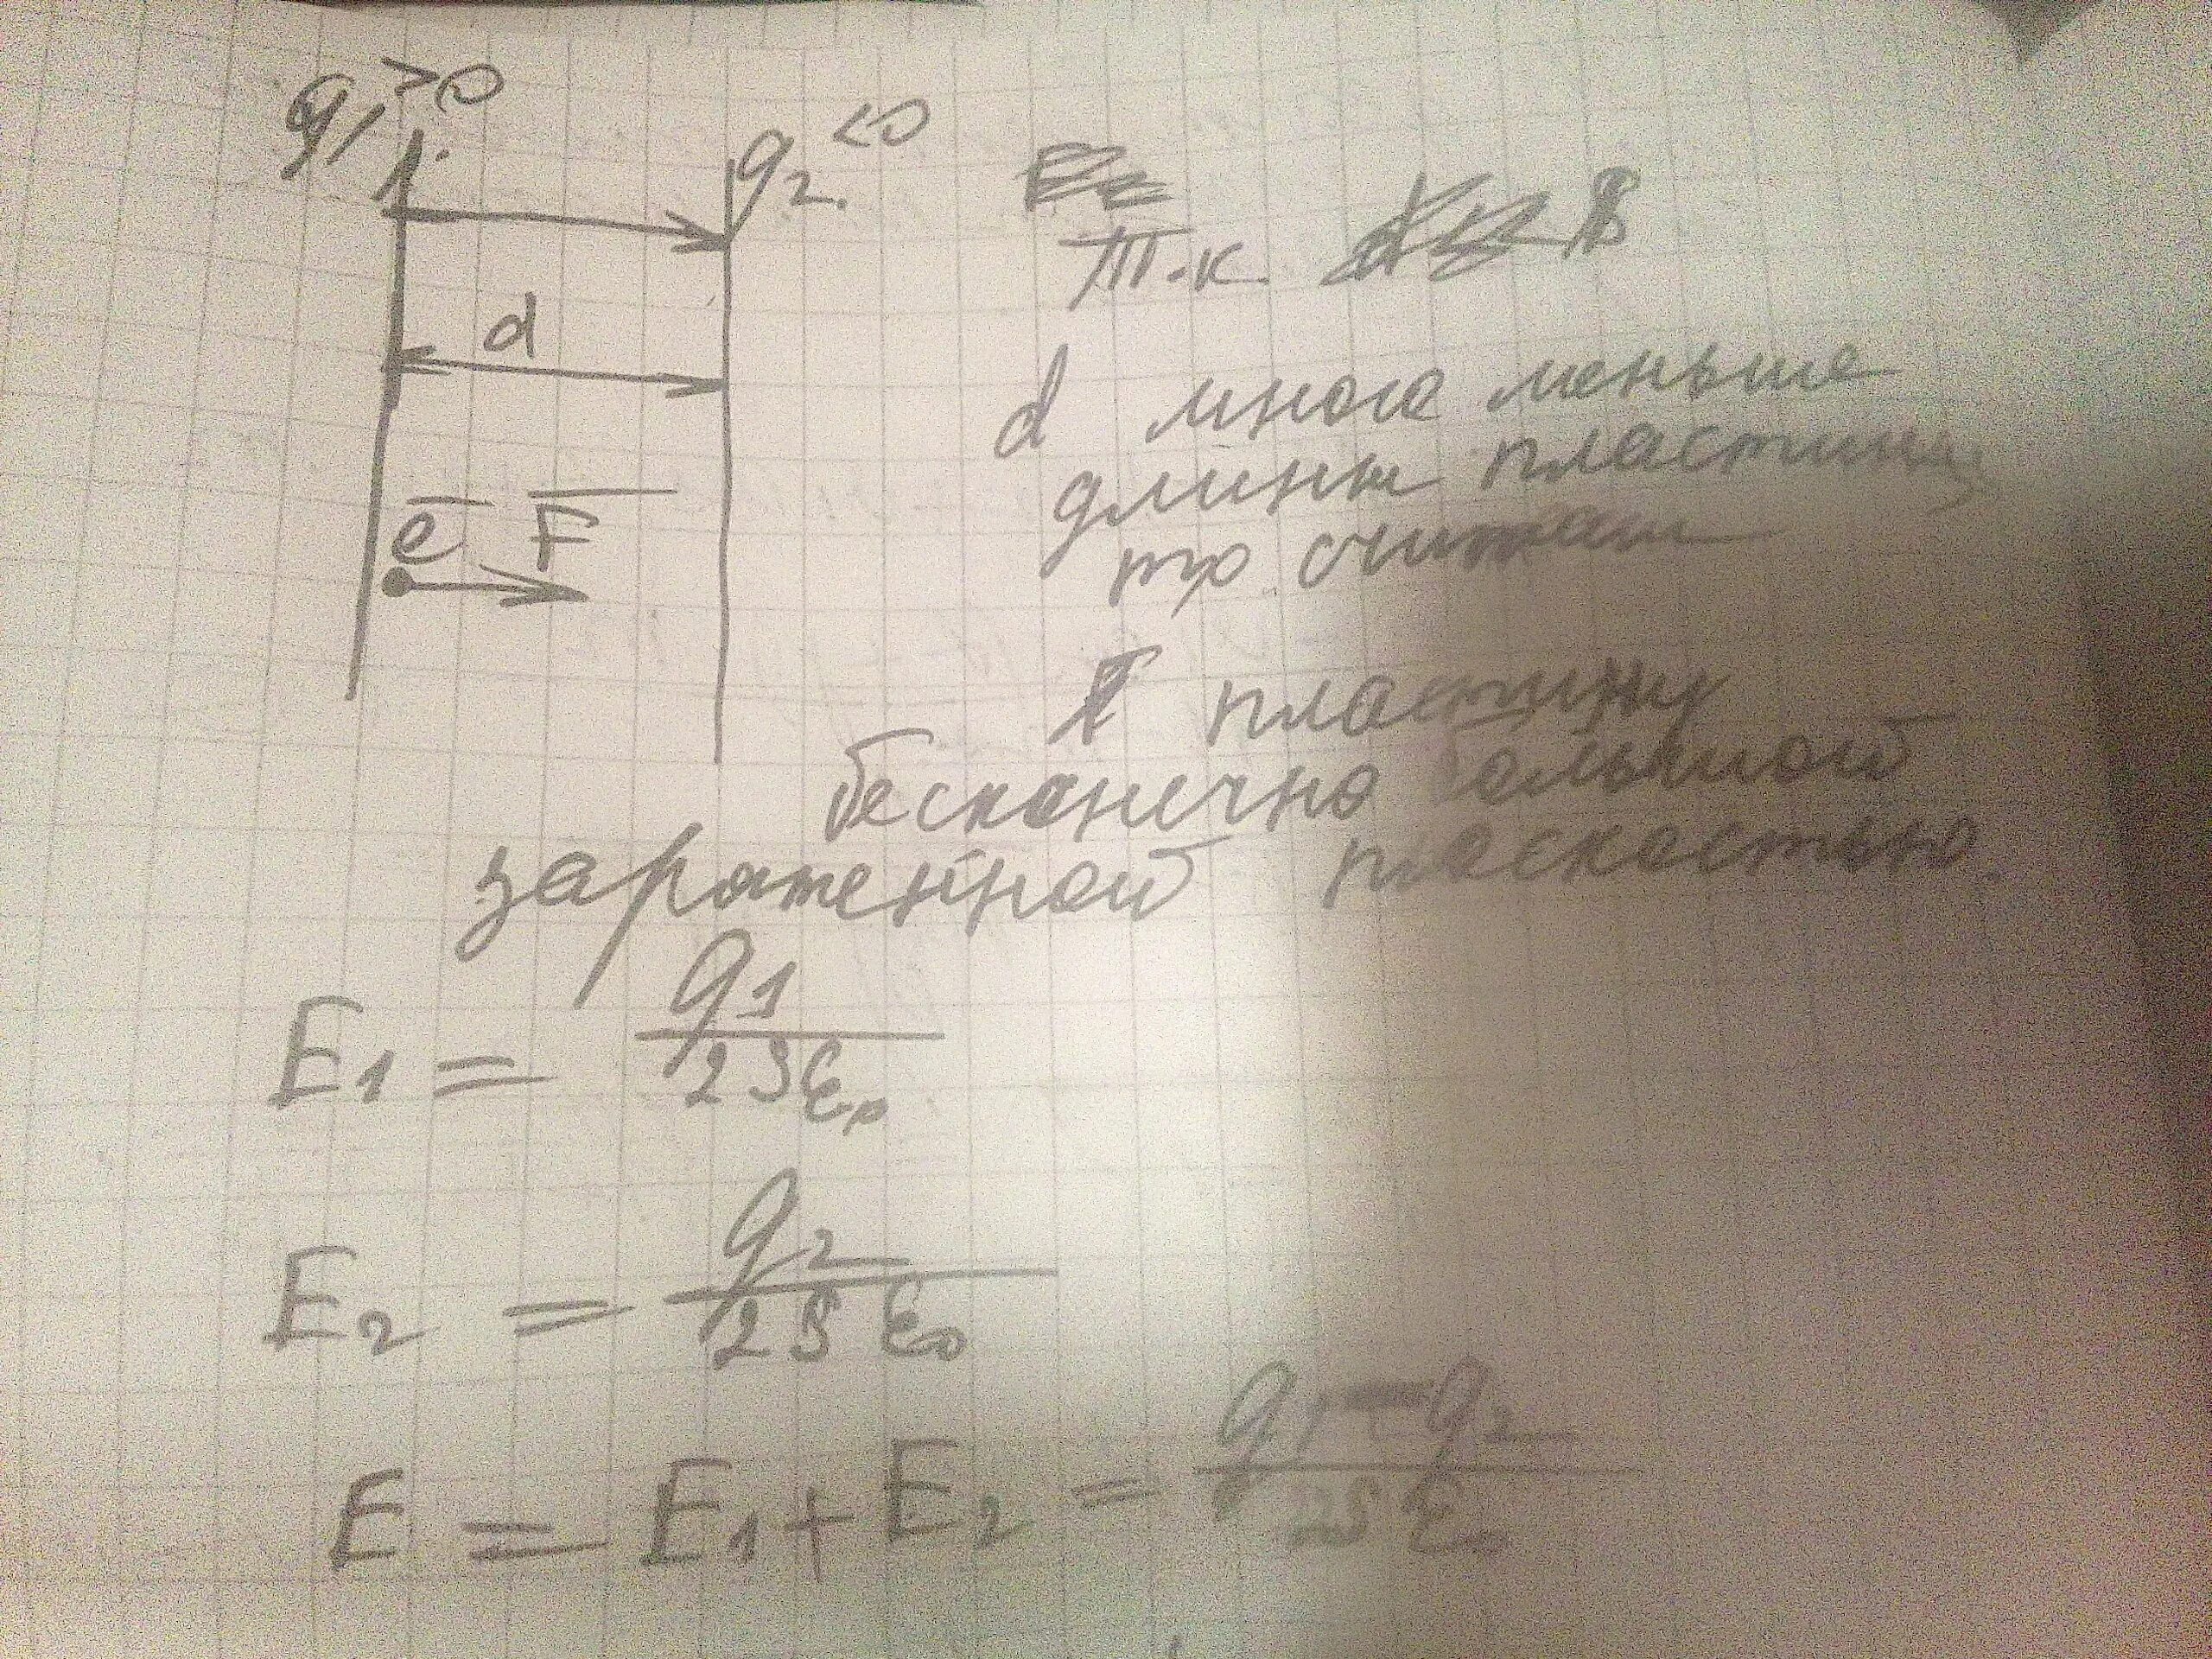 q₁>0
q₂<0
т.к.
d
d много меньше
длины пластины
то считаем
e F
пластину
бесконечно большой
заряженной плоскостью.
E₁ = q₁/2Sε₀
E₂ = q₂/2Sε₀
E = E₁ + E₂ = q₁ - q₂/2Sε₀